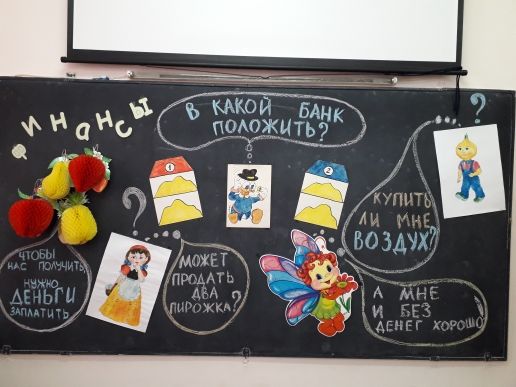 Финансы
В КАКОЙ БАНК
ПОЛОЖИТЬ?
1
2
?
КУПИТЬ
ЛИ МНЕ
ВОЗДУХ?
ЧТОБЫ
НАС ПОЛУЧИТЬ
НУЖНО
ДЕНЬГИ
ЗАПЛАТИТЬ
?
МОЖЕТ
ПРОДАТЬ
ДВА
ПИРОЖКА?
А МНЕ
И БЕЗ
ДЕНЕГ ХОРОШО